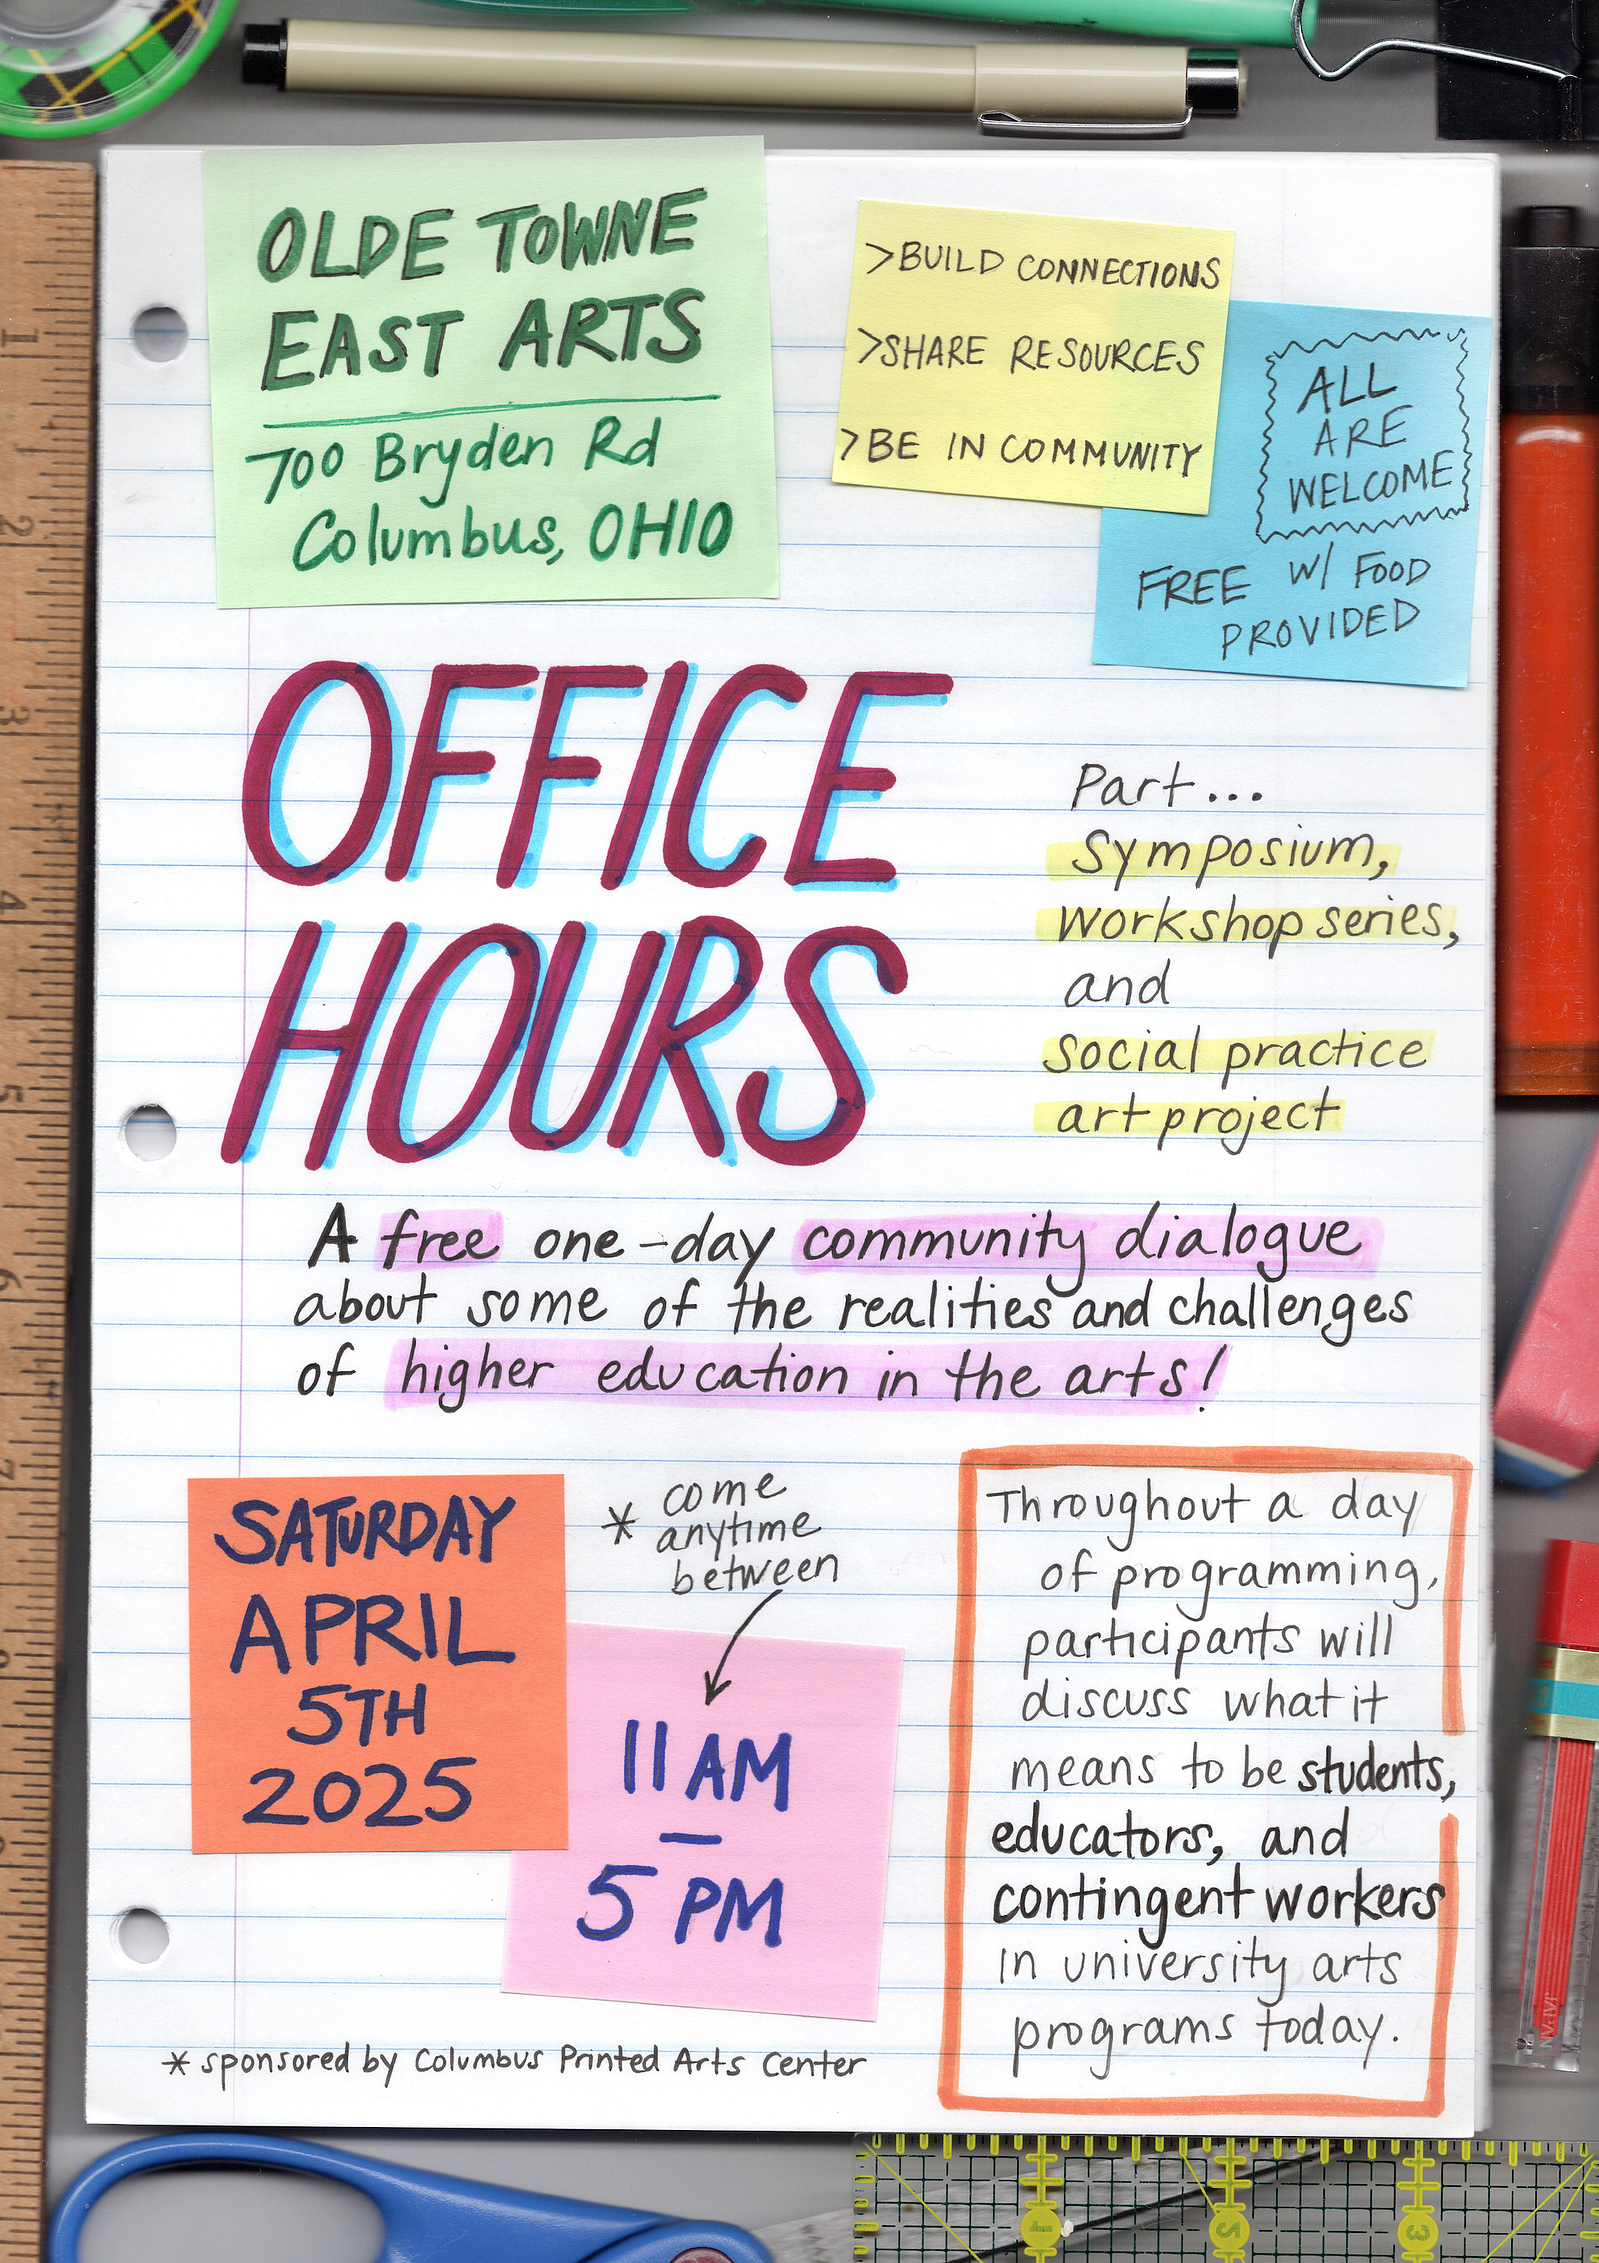 OLDE TOWNE
EAST ARTS
700 Bryden Rd
Columbus, OHIO
>BUILD CONNECTIONS
>SHARE RESOURCES
>BE IN COMMUNITY
ALL
ARE
WELCOME
FREE w/ FOOD
PROVIDED
OFFICE
HOURS
Part...
Symposium,
workshop series,
and
social practice
art project
A free one-day community dialogue
about some of the realities and challenges
of higher education in the arts!
SATURDAY
APRIL
5TH
2025
* come
anytime
between
11 AM
—
5 PM
Throughout a day
of programming,
participants will
discuss what it
means to be students,
educators, and
contingent workers
in university arts
programs today.
* sponsored by Columbus Printed Arts Center
1
2
3
4
5
6
7
5
3